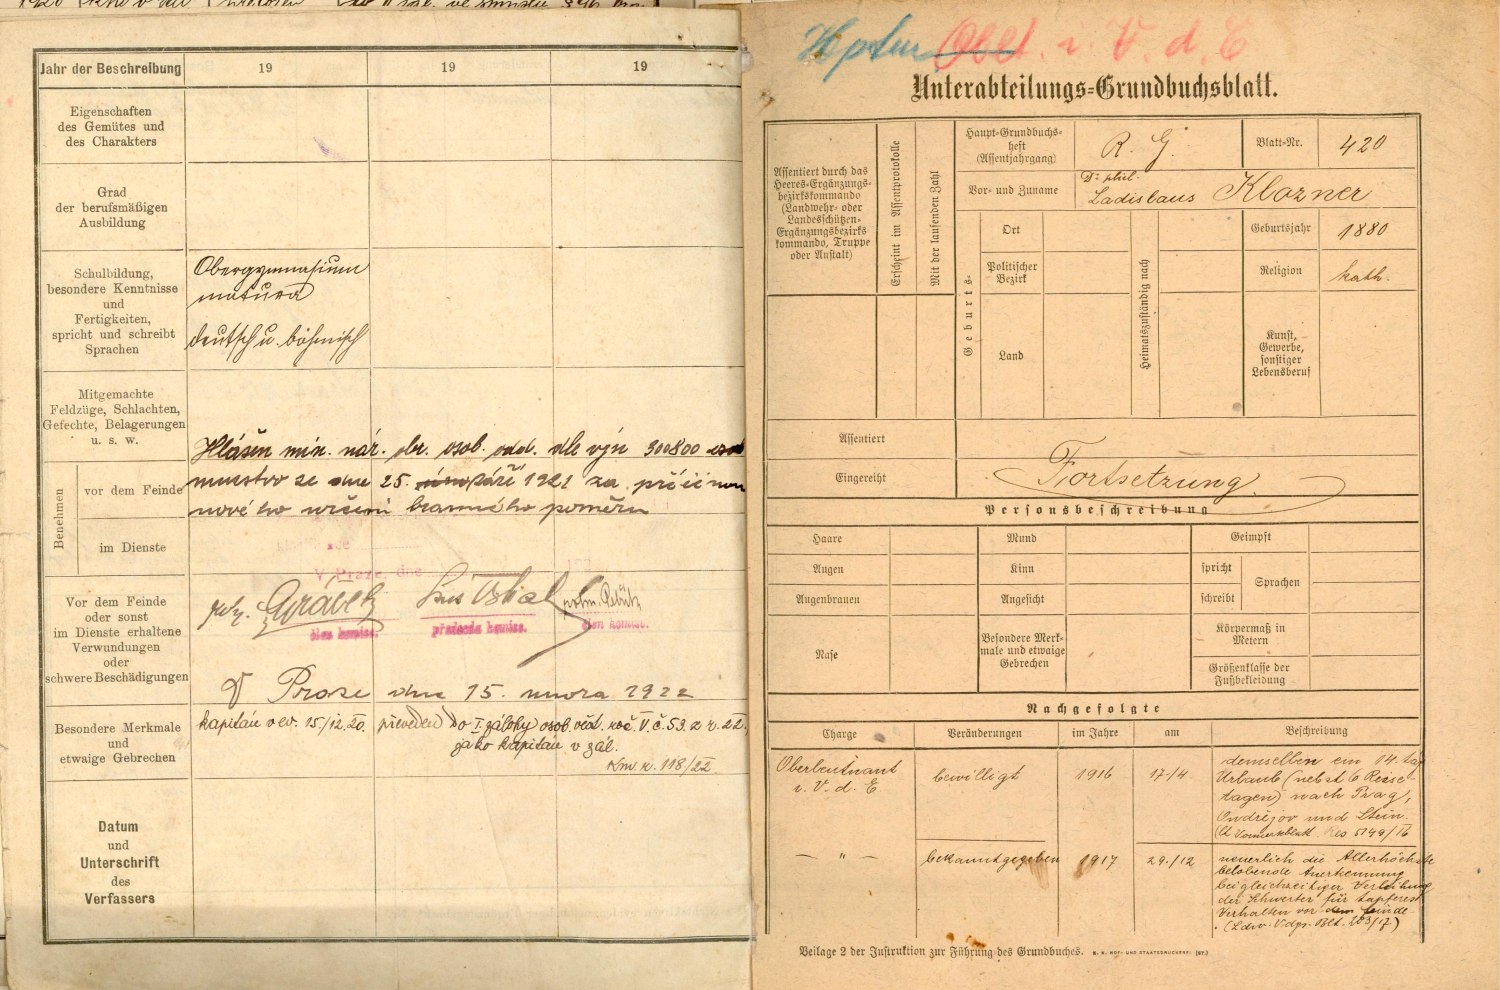 Jahr der Beschreibung
19
19
19
Eigenschaften
des Gemütes und
des Charakters
Grad
der berufsmäßigen
Ausbildung
Schulbildung,
besondere Kenntnisse
und
Fertigkeiten,
spricht und schreibt
Sprachen
Obergymnasium
matura
deutsch u. böhmisch
Mitgemachte
Feldzüge, Schlachten,
Gefechte, Belagerungen
u. s. w.
Hlášen min. nár. obr. osob. odd. dle výn 300800
Benehmen
vor dem Feinde
mužstvo ze dne 25. září 1921 za příčinou
nového určení branného poměru
im Dienste
V Praze, dne
Vor dem Feinde
oder sonst
im Dienste erhaltene
Verwundungen
oder
schwere Beschädigungen
člen komise.
předseda komise.
člen komise.
V Praze dne 15. února 1922
Besondere Merkmale
und
etwaige Gebrechen
kapitán v ev. 15/12.20.
převeden do I. zálohy osob. věst. roč. V. č. 53. z r. 22.
jako kapitán v zál.
118/22
Datum
und
Unterschrift
des
Verfassers
Hptm Oblt. i. V. d. E
Unterabteilungs-Grundbuchsblatt.
Assentiert durch das
Heeres-Ergänzungs-
bezirkskommando
(Landwehr- oder
Landesschützen-
Ergänzungsbezirks
kommando, Truppe
oder Anstalt)
Erscheint im Assentprotokolle
Mit der laufenden Zahl
Haupt-Grundbuchs-
heft
(Assentjahrgang)
R. G.
Blatt-Nr.
420
Vor- und Zuname
Dr. phil.
Ladislaus Klozner
Geburts-
Ort
Politischer
Bezirk
Land
Heimatszuständig nach
Geburtsjahr
1880
Religion
kath.
Kunst,
Gewerbe,
sonstiger
Lebensberuf
Assentiert
Eingereiht
Fortsetzung.
Personsbeschreibung
Haare
Mund
Geimpft
Augen
Kinn
spricht
schreibt
Sprachen
Augenbrauen
Angesicht
Nase
Besondere Merk-
male und etwaige
Gebrechen
Körpermaß in
Metern
Größenklasse der
Fußbekleidung
Nachgefolgte
Charge
Veränderungen
im Jahre
am
Beschreibung
Oberleutnant
i. V. d. E.
bewilligt
1916
17/4
demselben ein 14. täg
Urlaub (nebst 6 Reise-
tagen) nach Prag,
Ondřejov und Stein.
(lt Vormerkblatt Res 5149/16
— " —
bekanntgegeben
1917
29./12
neuerlich die Allerhöchste
belobende Anerkennung
bei gleichzeitiger Verleihung
der Schwerter für tapferes
Verhalten vor dem Feinde
(Ldw. Vdgs. Blt. 203/17)
Beilage 2 der Instruktion zur Führung des Grundbuches.
K. K. HOF- UND STAATSDRUCKEREI